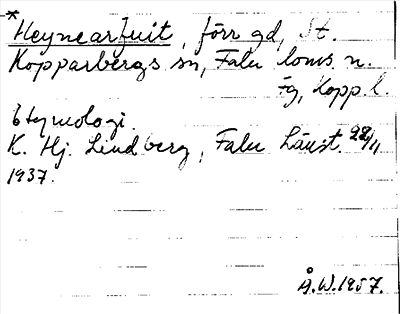 *Heynearfuit, förr gd, St.
Kopparbergs sn, Falu loms n.
fg, Kopp. l.
Etymologi.
K. Hj. Lindberg, Falu Länst. 28/11
1937.
Å.W.1957.